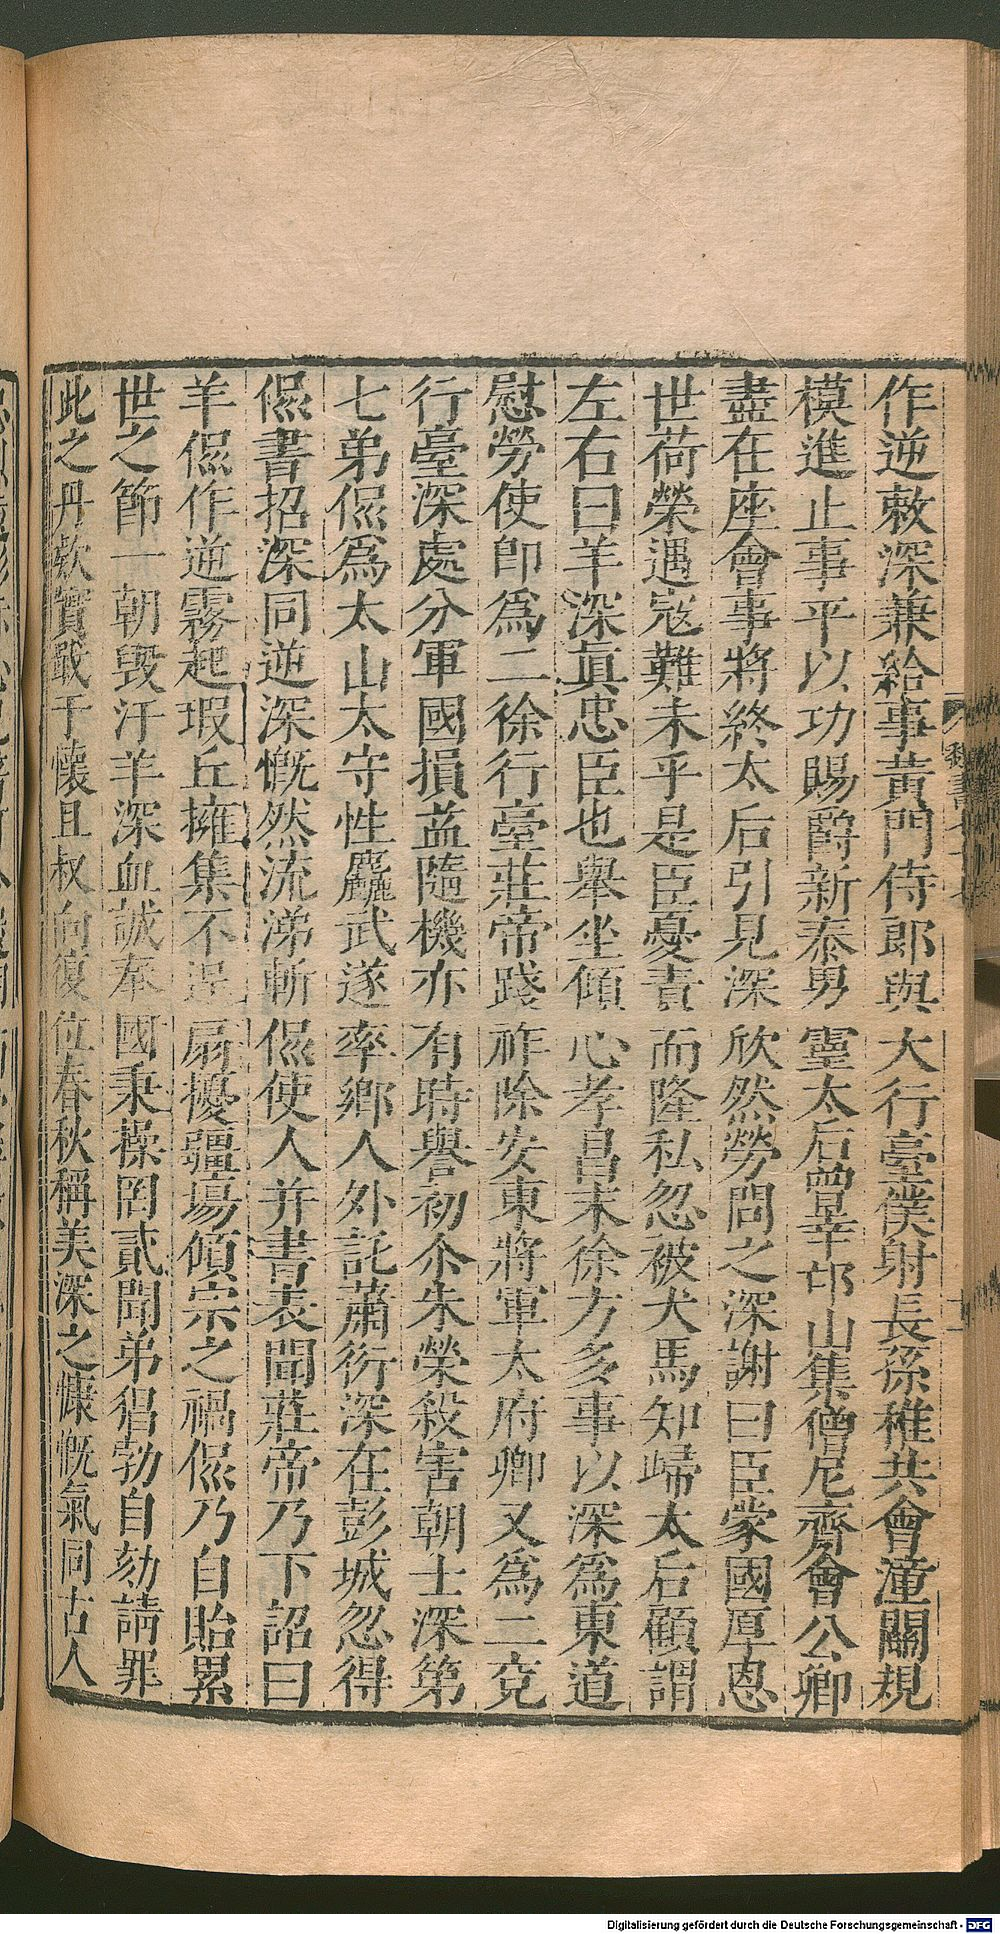 作逆敕深兼給事黃門侍郎與大行臺僕射長孫稚共會潼關規
模進止事平以功賜爵新泰男靈太后曾幸邙山集僧尼齋會公卿
盡在座會事將終太后引見深欣然勞問之深謝曰臣蒙國厚恩
世荷榮遇寇難未平是臣憂責而隆私忽被犬馬知歸太后顧謂
左右曰羊深真忠臣也舉坐傾心孝昌末徐方多事以深為東道
慰勞使即為二徐行臺莊帝踐祚除安東將軍太府卿又為二兗
行臺深處分軍國損益隨機亦有時譽初尒朱榮殺害朝士深第
七弟偘為太山太守性麤武遂率鄉人外託蕭衍深在彭城忽得
偘書招深同逆深慨然流涕斬偘使人并書表聞莊帝乃下詔曰
羊偘作逆霧起瑕丘擁集不逞扇擾疆場傾宗之禍偘乃自貽累
世之節一朝毀汙羊深血誠奉國秉操罔貳聞弟猖勃自劾請罪
此之丹款實戢于懷且叔向復位春秋稱美深之慷慨氣同古人
魏書
Digitalisierung gefördert durch die Deutsche Forschungsgemeinschaft - DFG